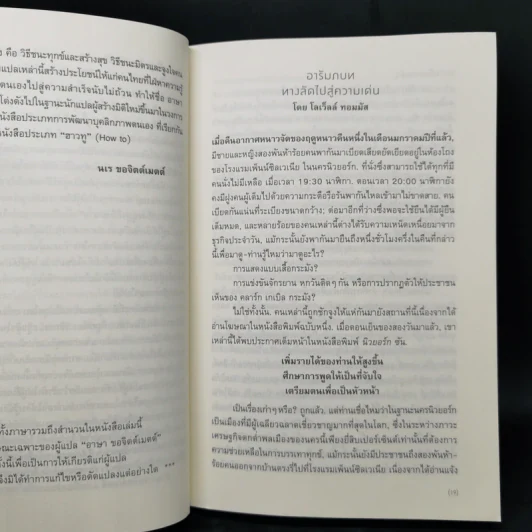 ง คือ วิธีชนะทุกข์และสร้างสุข วิธีชนะมิตรและจูงใจคน
แปลเหล่านี้สร้างประโยชน์ให้แก่คนไทยที่ใฝ่หาความรู้
ตนเองไปสู่ความสำเร็จนับไม่ถ้วน ทำให้ชื่อ อาษา
โด่งดังไปในฐานะนักแปลผู้สร้างมิติใหม่ขึ้นมาในวงการ
หนังสือประเภทการพัฒนาบุคลิกภาพตนเอง ที่เรียกกัน
หนังสือประเภท "ฮาวทู" (How to)
นเร ขอจิตต์เมตต์
ทั้งภาษารวมถึงสำนวนในหนังสือเล่มนี้
ณะเฉพาะของผู้แปล "อาษา ขอจิตต์เมตต์"
ั้งนี้เพื่อเป็นการให้เกียรติแก่ผู้แปล
จึงมิได้ทำการแก้ไขหรือดัดแปลงแต่อย่างใด ***
อารัมภบท
ทางลัดไปสู่ความเด่น
โดย โลเวิลล์ ทอมมัส
เมื่อคืนอากาศหนาวจัดของฤดูหนาวคืนหนึ่งในเดือนมกราคมปีที่แล้ว,
มีชายและหญิงสองพันห้าร้อยคนพากันมาเบียดเสียดยัดเยียดอยู่ในห้องโถง
ของโรงแรมเพ็นน์ซิลเวเนีย ในนครนิวยอร์ก ที่นั่งซึ่งสามารถใช้ได้ทุกที่มี
คนนั่งไม่มีเหลือ เมื่อเวลา 19:30 นาฬิกา. ตอนเวลา 20:00 นาฬิกายัง
คงมีฝูงคนผู้เต็มไปด้วยความกระตือรือร้นพากันไหลเข้ามาไม่ขาดสาย. คน
เบียดกันแน่นที่ระเบียงขนาดกว้าง; ต่อมาอีกที่ว่างซึ่งพอจะใช้ยืนได้มีผู้ยืน
เต็มหมด, และหลายร้อยของคนเหล่านี้ต่างได้รับความเหนื่อยมาจาก
ธุรกิจประจำวัน, แม้กระนั้นยังพากันมายืนถึงหนึ่งชั่วโมงครึ่งในคืนที่กล่าว
นี้เพื่อมาดู-ท่านรู้ไหมว่ามาดูอะไร?
การแสดงแบบเสื้อกระมัง?
การแข่งขันจักรยาน หกวันติดๆ กัน หรือการปรากฏตัวให้ประชาชน
เห็นของ คลาร์ก เกเบิล กระมัง?
ไม่ใช่ทั้งนั้น. คนเหล่านี้ถูกชักจูงให้แห่กันมายังสถานที่นี้เนื่องจากได้
อ่านโฆษณาในหนังสือพิมพ์ฉบับหนึ่ง. เมื่อตอนเย็นของสองวันมาแล้ว, เขา
เหล่านี้ได้พบประกาศเต็มหน้าในหนังสือพิมพ์ นิวยอร์ก ซัน.
เพิ่มรายได้ของท่านให้สูงขึ้น
ศึกษาการพูดให้เป็นที่จับใจ
เตรียมตนเพื่อเป็นหัวหน้า
เป็นเรื่องเก่าๆ หรือ? ถูกแล้ว, แต่ท่านเชื่อไหมว่าในฐานะนครนิวยอร์ก
เป็นเมืองที่มีผู้เฉลียวฉลาดเชี่ยวชาญมากที่สุดในโลก, ซึ่งในระหว่างภาวะ
เศรษฐกิจตกต่ำพลเมืองของนครนี้เพียงยี่สิบเปอร์เซ็นต์เท่านั้นที่ต้องการ
ความช่วยเหลือในการบรรเทาทุกข์, แม้กระนั้นยังมีประชาชนถึงสองพันห้า-
ร้อยคนออกจากบ้านตรงรี่ไปที่โรงแรมเพ็นน์ซิลเวเนีย เนื่องจากได้อ่านแจ้ง